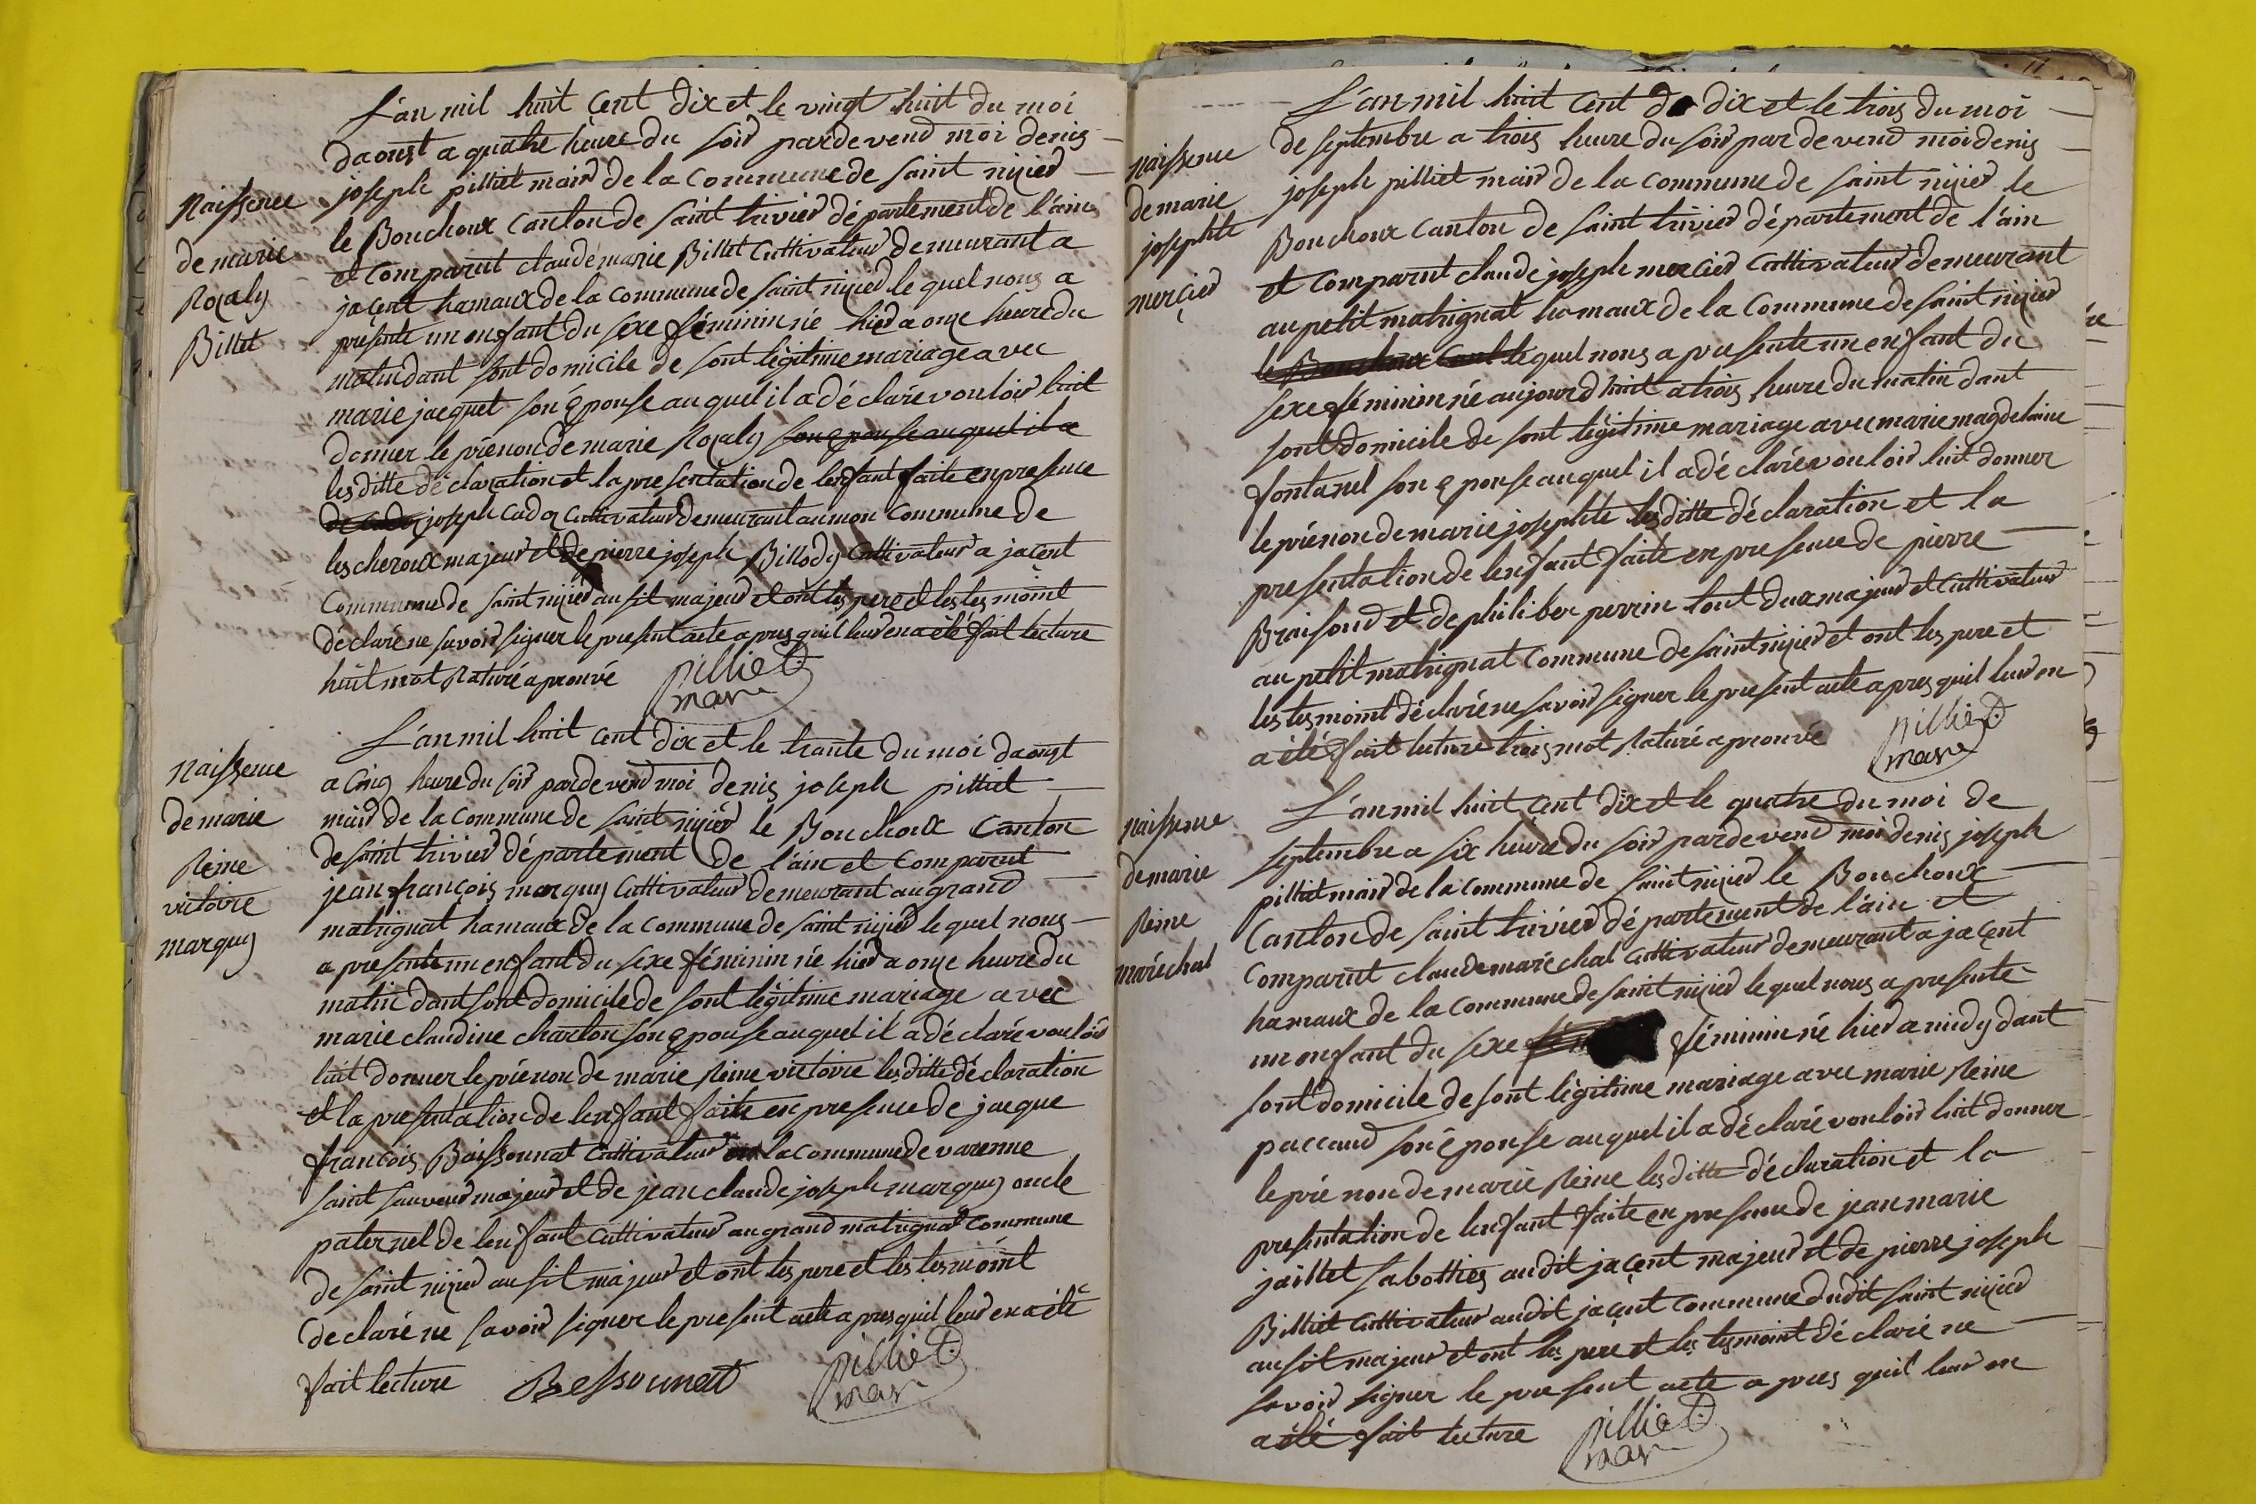 L'an mil huit cent dix et le vingt huit du moi
daoust a quatre heure du soir pardevend moi denis
joseph pilliet mair de la Commune de saint nizier
le Bouchoux canton de saint trivier département de l'ain
et comparut claude marie Billet Cultivateur demeurant a
jaçent hamaux de la Commune de saint nizier le quel nous a
presente un enfant du sexe féminin né hier a onze heure du
matin dant sont domicile de sont légitime mariage avec
marie jacquet son épouse au quel il a déclaré vouloir luit
donner le prénon de marie Rozaly son épouse au quel il a
lesditte déclaration et la presentation de lenfant faite en presence
joseph cadoz Cultivateur demeurant au mon Commune de
lescheroux majeur et de pierre joseph Billody Cultivateur a jaçent
Commune de saint nizier ausit majeur et ont les pere et les tesmoint
déclaré ne savoir signer le present acte apres quil leur en a été fait lecture
huit mot Raturé aprouvé pilliet
mair
Naissence
de marie
Rozaly
Billet
L'an mil huit cent dix et le trante du moi daoust
a cinq heure du soir pardevend moi denis joseph pilliet
mair de la Commune de saint nizier le Bouchoux Canton
de saint trivier département de l'ain et comparut
jean françois marquy Cultivateur demeurant au grand
matrignat hamaux de la commune de saint nizier le quel nous
a presente un enfant du sexe féminin né hier a onze heure du
matin dant sont domicile de sont légitime mariage avec
marie claudine charlon son épouse au quel il a déclaré vouloir
luit donner le prénon de marie Reine victoire lesditte déclaration
et la presentation de lenfant faite en presence de jacque
françois Boissonnat Cultivateur la commune de varenne
saint sauveur majeur et de jean claude joseph marquy oncle
paternel de lenfant Cultivateur au grand matrignat Commune
de saint nizier ausit majeur et ont les pere et les tesmoint
declaré ne savoir signer le present acte apres quil leur en a été
fait lecture Bessounat pilliet
mair
naissence
de marie
Reine
victoire
marquy
L'an mil huit cent dix et le trois du moi
de septembre a trois heure du soir pardevend moi denis
joseph pilliet mair de la commune de saint nizier le
Bouchoux canton de saint trivier département de l'ain
et comparut claude joseph mercier cultivateur demeurant
au petit matrignat hamaux de la Commune de saint nizier
le Bouchoux cant lequel nous a presente un enfant du
sexe féminin né aujourd huit a trois heure du matin dant
sont domicile de sont légitime mariage avec marie magdelaine
fontanel son épouse au quel il a déclaré vouloir luit donner
le prénon de marie josephte lesditte déclaration et la
presentation de lenfant faite en presence de pierre
Braisond et de philiber perrin tout deux majeur et Cultivateur
au petit matrignat Commune de saint nizier et ont les pere et
les tesmoint déclaré ne savoir signer le present acte apres quil leur en
a été fait lecture trois mot Raturé aprouvé pilliet
mair
naissence
de marie
josephte
mercier
L'an mil huit cent dix et le quatre du moi de
septembre a six heure du soir pardevend moi denis joseph
pilliet mair de la commune de saint nizier le Bouchoux
Canton de saint trivier département de l'ain et
comparut claude maréchal Cultivateur demeurant a jaçent
hamaux de la commune de saint nizier le quel nous a presente
un enfant du sexe féminin né hier a midy dant
sont domicile de sont légitime mariage avec marie Reine
paccaud son épouse au quel il a déclaré vouloir luit donner
le prénon de marie Reine lesditte déclaration et la
presentation de lenfant faite en presence de jean marie
jaillet sabottier audit jaçent majeur et de pierre joseph
Billiet Cultivateur audit jaçent commune dudit saint nizier
ausit majeur et ont les pere et les tesmoint déclaré ne
savoir signer le present acte apres quil leur en
a été fait lecture pilliet
mair
naissence
de marie
Reine
maréchal